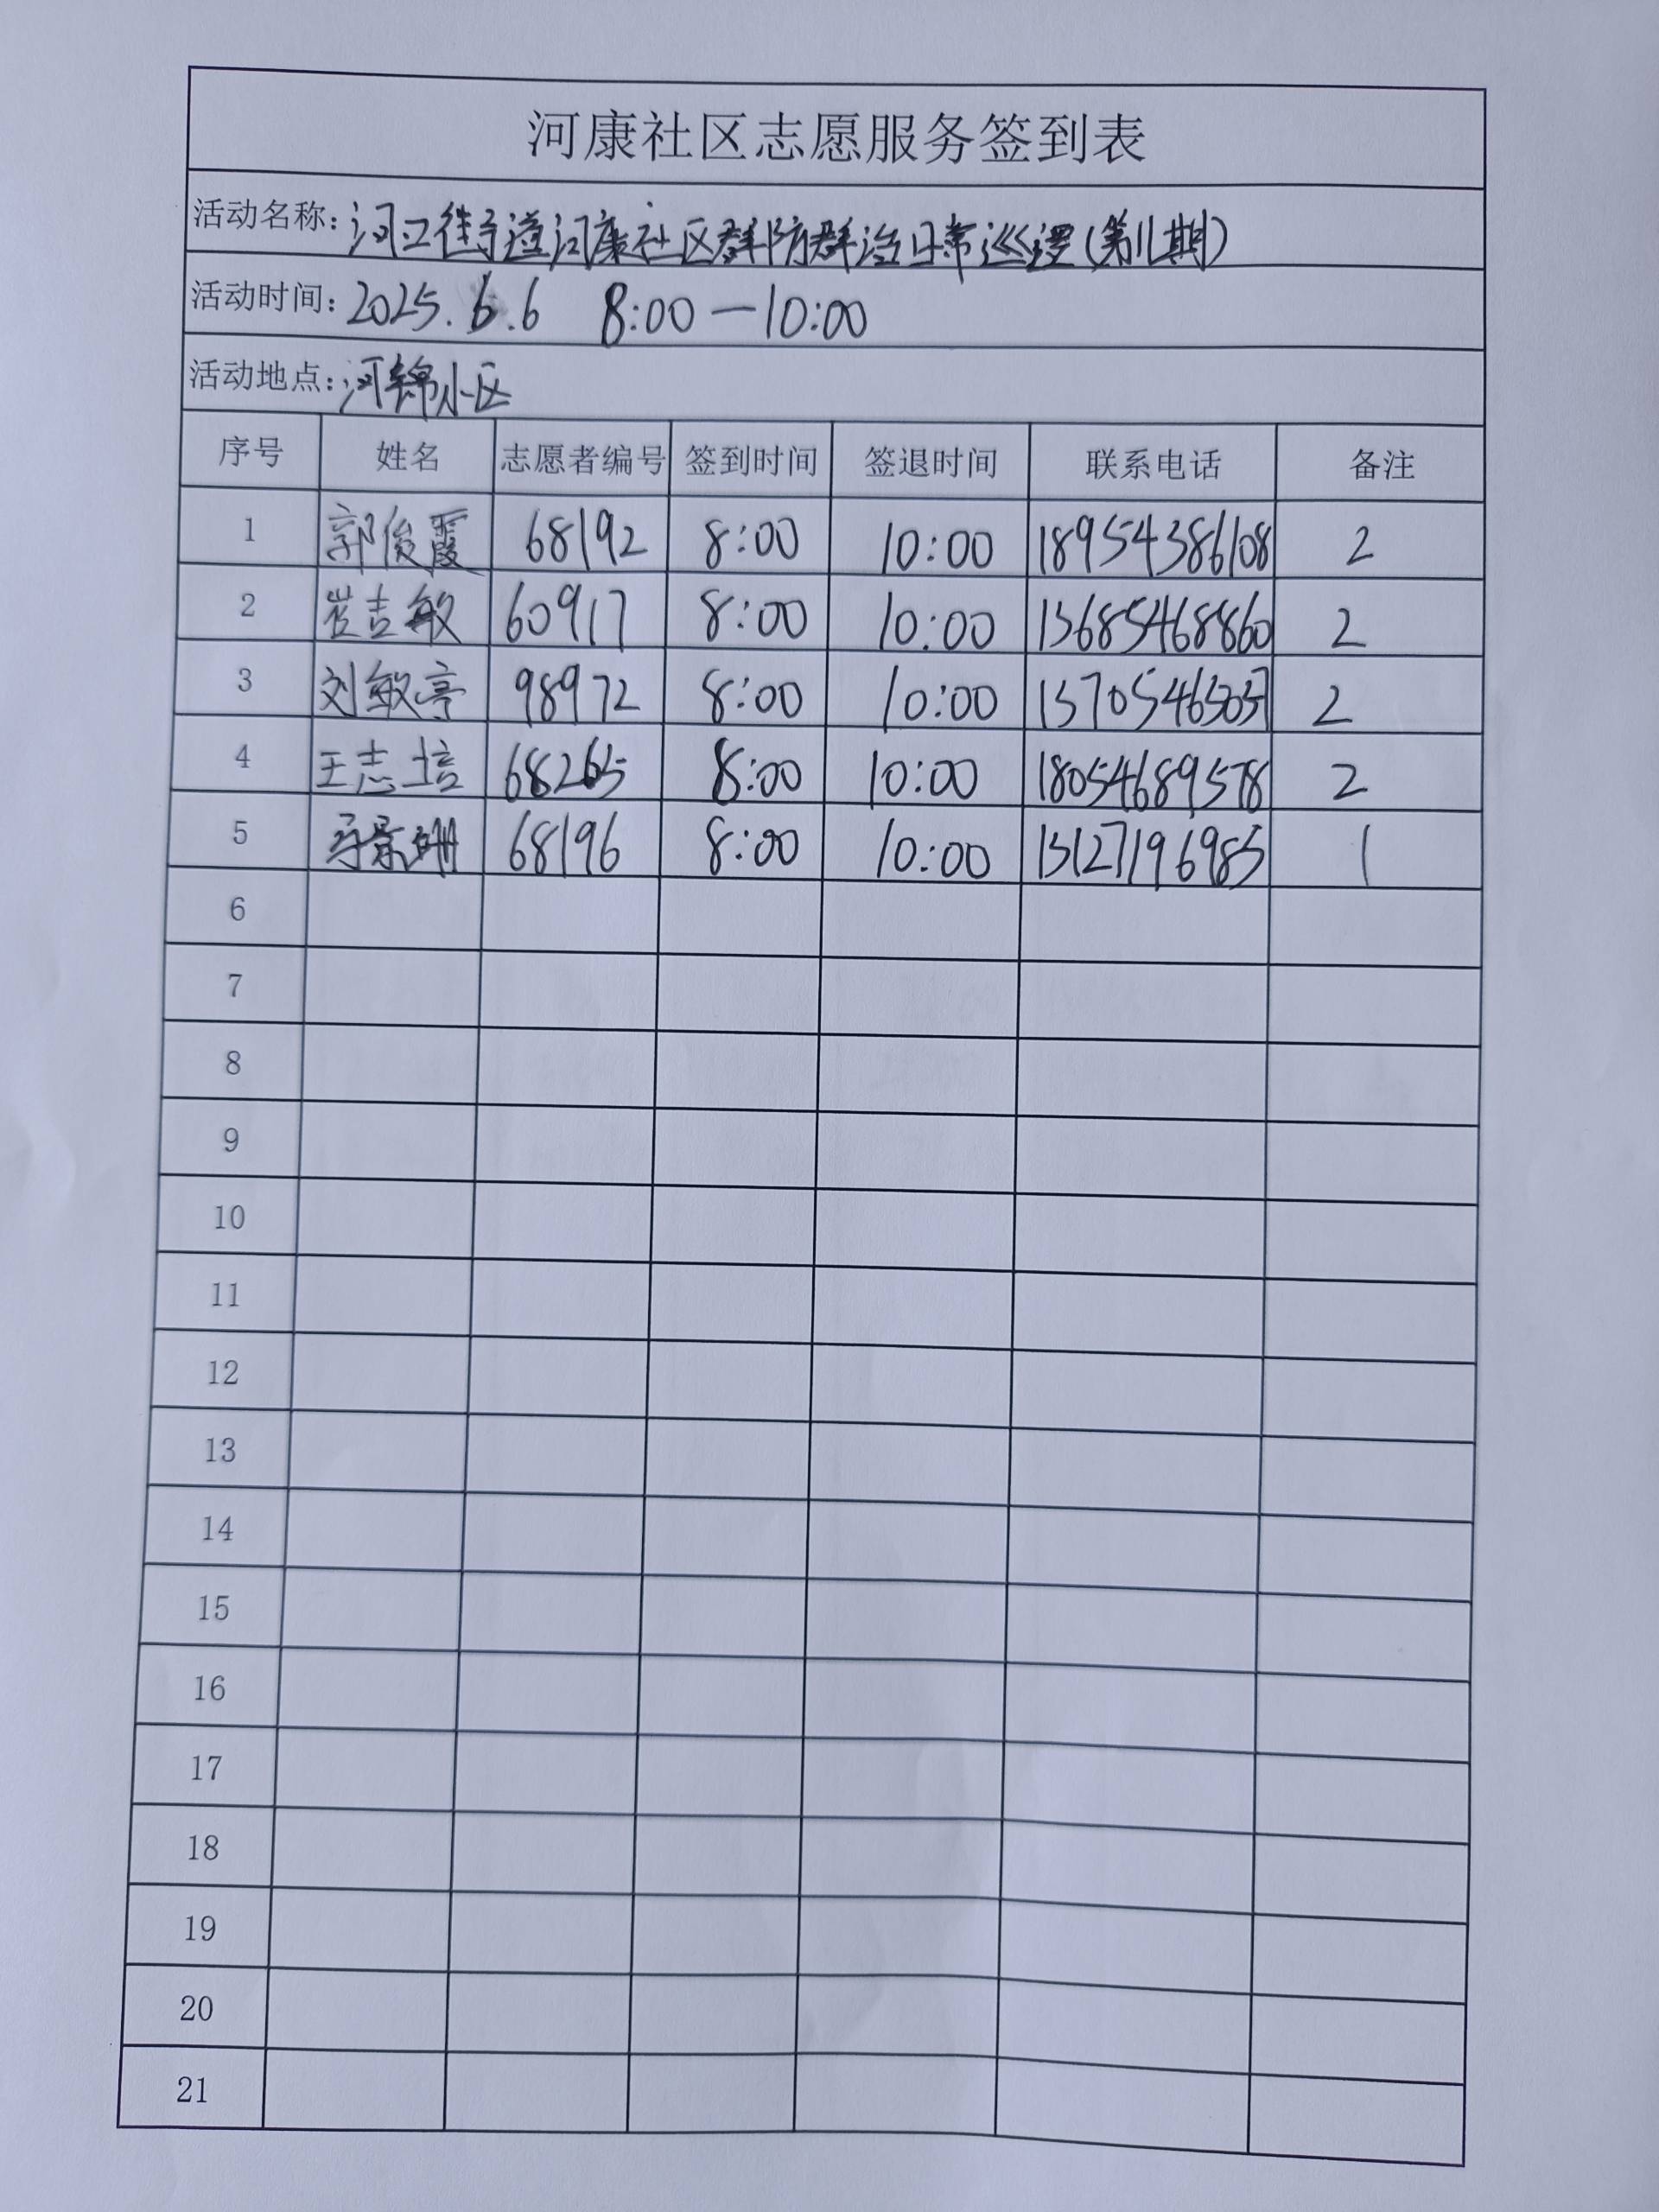 河康社区志愿服务签到表
活动名称：河口街道河康社区群防群治日常巡逻(第11期)
活动时间：2025.6.6 8:00—10:00
活动地点：河锦小区
序号 姓名 志愿者编号 签到时间 签退时间 联系电话 备注
1 郭俊霞 68192 8:00 10:00 18954386108 2
2 崔吉敏 60917 8:00 10:00 13685468860 2
3 刘敏亭 98972 8:00 10:00 2
4 王志培 68265 8:00 10:00 18054689578 2
5 68196 8:00 10:00 13127196985 1
6
7
8
9
10
11
12
13
14
15
16
17
18
19
20
21